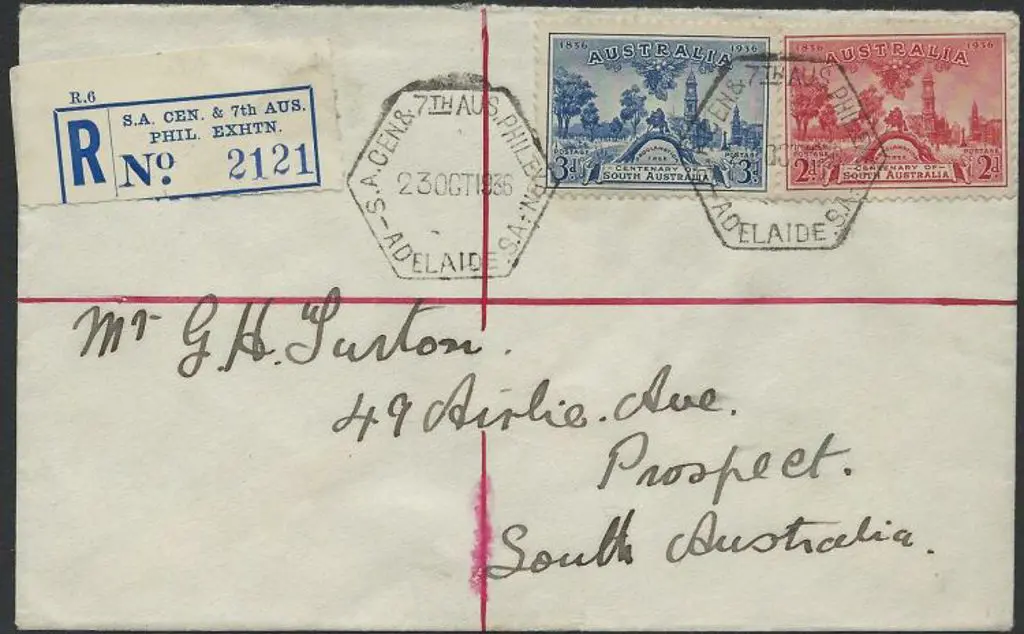 R.6
R
S.A. CEN. & 7th AUS.
PHIL. EXHTN.
No. 2121
S.A. CEN. & 7TH AUS. PHIL. EXHN.
23 OCT 1936
ADELAIDE. S.A.
1836 AUSTRALIA 1936
POSTAGE POSTAGE
CENTENARY OF
3d. SOUTH AUSTRALIA 3d.
1836 AUSTRALIA 1936
POSTAGE POSTAGE
CENTENARY OF
2d SOUTH AUSTRALIA 2d
CEN. & 7TH AUS. PHIL.
ADELAIDE. S.A.
Mr G. H.
49 Airlie. Ave.
Prospect.
South Australia.